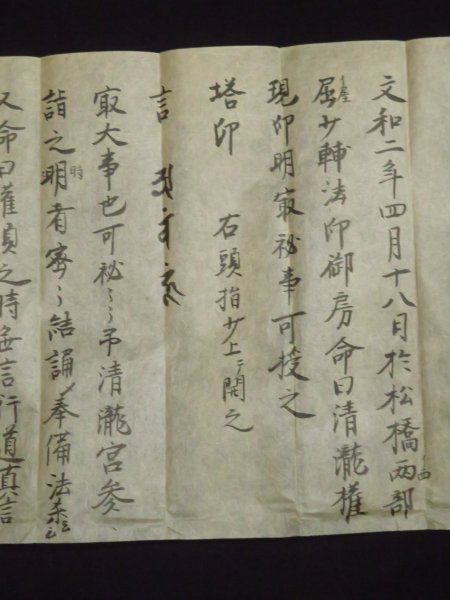 文和二年四月十八日於松橋両部
屈少輔法印御房命曰清瀧権
現印明冣祕事可授之
塔印　右頭指少上ニ開之
言
冣大事也可祕〻〻弔清瀧宮参
詣之時明者密〻結誦奉備法楽云云
又命曰灌頂之時無言行道真言